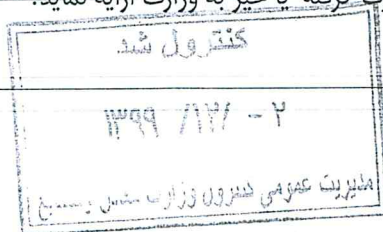 گرفته یا خیر به وزارت ارایه نماید.
کنترول شد
۱۳۹۹ /۱۲/ - ۲
مدیریت عمومی کنترول وزارت